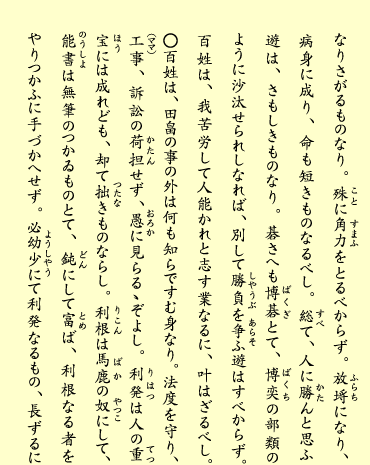 なりさがるものなり。殊に角力をとるべからず。放埓になり、
病身に成り、命も短きものなるべし。総て、人に勝んと思ふ
遊は、さもしきものなり。碁さへも博碁とて、博奕の部類の
ように沙汰せられしなれば、別して勝負を争ふ遊はすべからず。
百姓は、我苦労して人能かれと志す業なるに、叶はざるべし。
〇百姓は、田畠の事の外は何も知らですむ身なり。法度を守り、
工事、訴訟の荷担せず、愚に見らるゝぞよし。利発は人の重
宝には成れども、却て拙きものならし。利根は馬鹿の奴にして、
能書は無筆のつかゐものとて、鈍にして富ば、利根なる者を
やりつかふに手づかへせず。必幼少にて利発なるもの、長ずるに